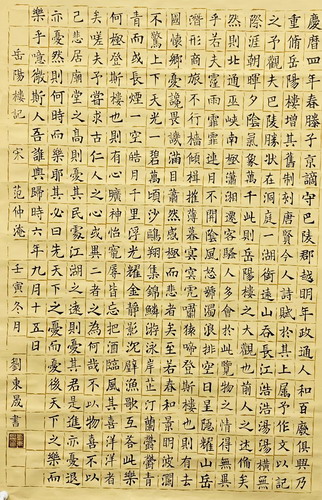 慶曆四年春滕子京謫守巴陵郡越明年政通人和百廢俱興乃
重脩岳陽樓增其舊制刻唐賢今人詩賦於其上屬予作文以記
之予觀夫巴陵勝狀在洞庭一湖銜遠山吞長江浩浩湯湯橫無
際涯朝暉夕陰氣象萬千此則岳陽樓之大觀也前人之述備矣
然則北通巫峽南極瀟湘遷客騷人多會於此覽物之情得無異
乎若夫霪雨霏霏連月不開陰風怒號濁浪排空日星隱耀山岳
潛形商旅不行檣傾楫摧薄暮冥冥虎嘯猿啼登斯樓也則有去
國懷鄉憂讒畏譏滿目蕭然感極而悲者矣至若春和景明波瀾
不驚上下天光一碧萬頃沙鷗翔集錦鱗游泳岸芷汀蘭鬱鬱青
青而或長煙一空皓月千里浮光耀金靜影沉璧漁歌互答此樂
何極登斯樓也則有心曠神怡寵辱皆忘把酒臨風其喜洋洋者
矣嗟夫予嘗求古仁人之心或異二者之為何哉不以物喜不以
己悲居廟堂之高則憂其民處江湖之遠則憂其君是進亦憂退
亦憂然則何時而樂耶其必曰先天下之憂而憂後天下之樂而
樂乎噫微斯人吾誰與歸時六年九月十五日
岳陽樓記 宋 范仲淹 壬寅冬月 劉東晟書